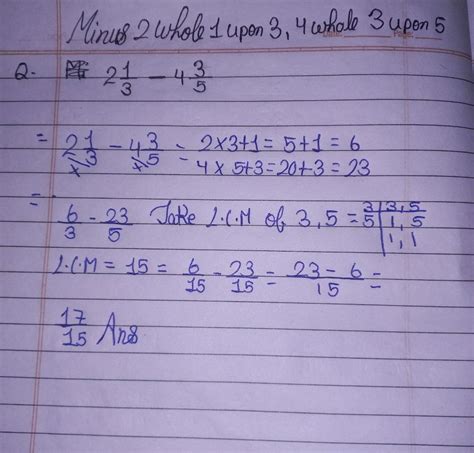 Minus 2 whole 1 upon 3, 4 whole 3 upon 5
Q. 2 1/3 - 4 3/5
= 2 1/3 - 4 3/5 = 2x3+1 = 5+1 = 6
4 x 5+3 = 20+3 = 23
=
6/3 - 23/5 Take L.C.M of 3, 5 = 3 | 3, 5
5 | 1, 5
1, 1
L.C.M = 15 = 6/15 - 23/15 = 23 - 6/15 =
17/15 Ans